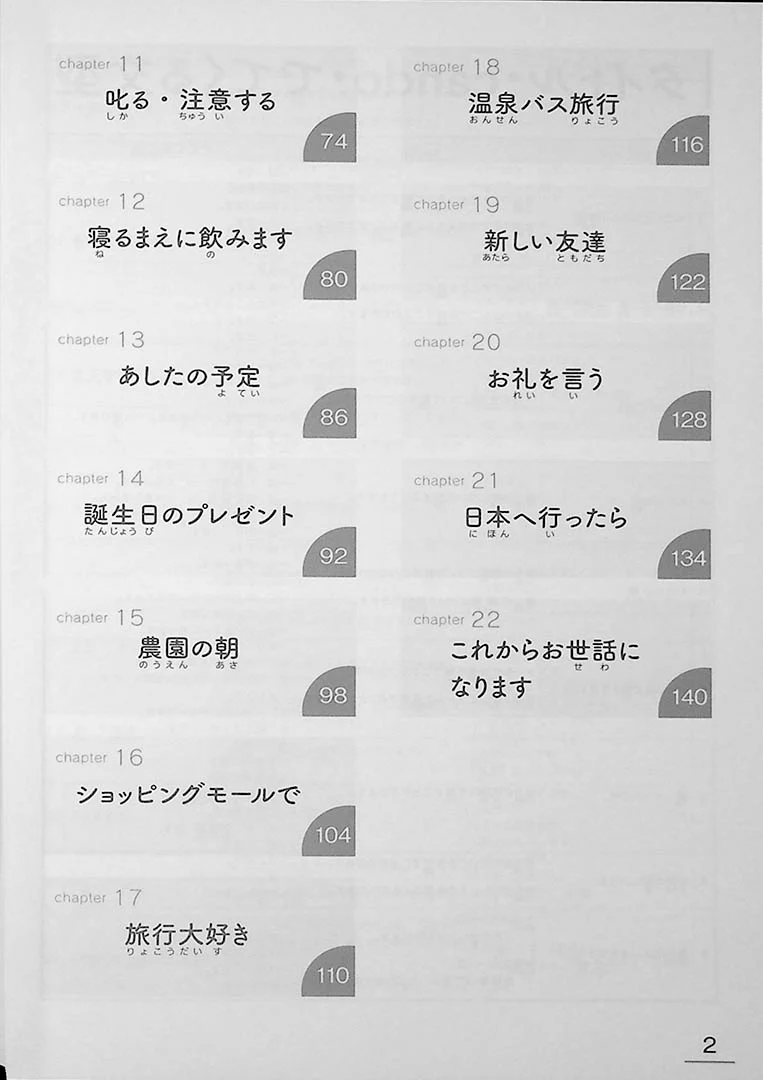 chapter 11
叱る・注意する
しか ちゅう い
74
chapter 12
寝るまえに飲みます
ね の
80
chapter 13
あしたの予定
よ てい
86
chapter 14
誕生日のプレゼント
たんじょう び
92
chapter 15
農園の朝
のうえん あさ
98
chapter 16
ショッピングモールで
104
chapter 17
旅行大好き
りょこうだい す
110
chapter 18
温泉バス旅行
おんせん りょこう
116
chapter 19
新しい友達
あたら ともだち
122
chapter 20
お礼を言う
れい い
128
chapter 21
日本へ行ったら
に ほん い
134
chapter 22
これからお世話に
せ わ
なります
140
2